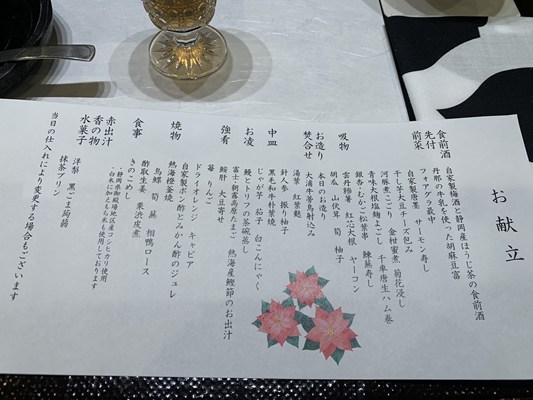 お献立
食前酒 自家製梅酒と静岡産ほうじ茶の食前酒
先付 丹那の牛乳を使った胡麻豆富
前菜 フォアグラ最中
自家製唐墨 サーモン寿し
干し芋大豆チーズ包み
河豚煮こごり 金柑蜜煮 菊花浸し
青味大根塩麹まごし 千車唐生ハム巻
銀杏・むかご松葉串 鰊蕪寿し
吸物 雲丹蹄薯 紅芯大根 ヤーコン
胡瓜 山伏茸 筍 柚子
お造り 本日のお造り
焚合せ 大浦牛蒡鳥射込み
湯葉 紅葉麩
針人参 振り柚子
中皿 黒毛和牛朴葉焼
じゃが芋 茄子 白こんにゃく
お凌 鰻とトリフの茶碗蒸し
富士・朝霧高原たまご 熱海産鰹節のお出汁
強肴 鮟肝 大豆寄せ
苺 りんご
ドライオレンジ キャビア
自家製ポン酢とみかん酢のジュレ
焼物 熱海橙釜焼
鳥鰆 筍 蕪 相鴨ロース
酢取生姜 栗渋皮煮
食事 きのこめし
・静岡県御殿場地区産コシヒカリ使用
・白米に加えもち米も使用しております
赤出汁
香の物
水菓子 洋梨 黒ごま蒟蒻
抹茶プリン
当日の仕入れにより変更する場合もございます